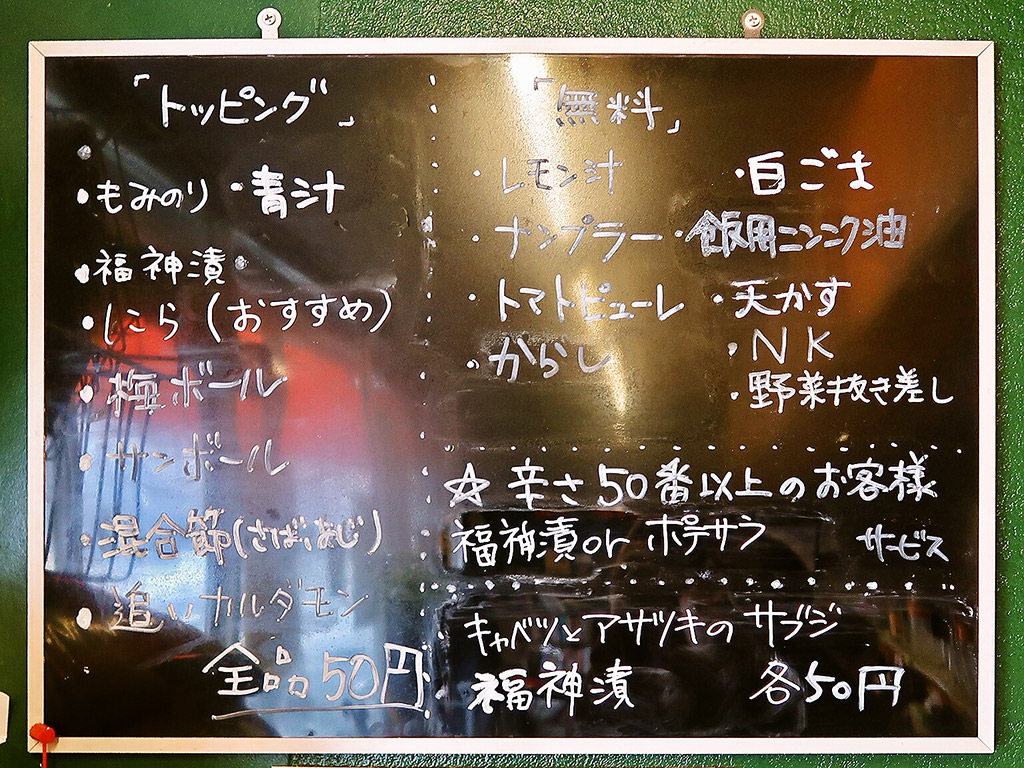 「トッピング」
・もみのり ・青汁
・福神漬・
・にら(おすすめ)
・梅ボール
・サンボール
・混合節(さば、あじ)
・追いカルダモン
全品50円
「無料」
・レモン汁 ・白ごま
・ナンプラー ・飯用ニンニク油
・トマトピューレ ・天かす
・からし ・NK
・野菜抜き差し
☆辛さ50番以上のお客様
福神漬or ポテサラ サービス
キャベツとアサツキの サブジ
福神漬 各50円